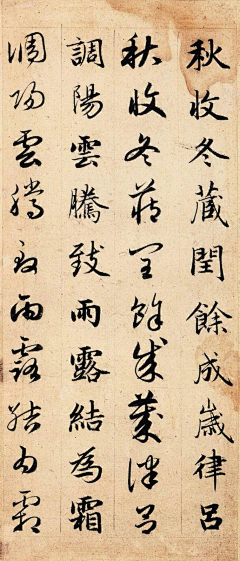 秋收冬藏閏餘成嵗律呂
秋收冬藏閏餘成歲律呂
調陽雲騰致雨露結為霜
調陽雲騰致雨露結為霜